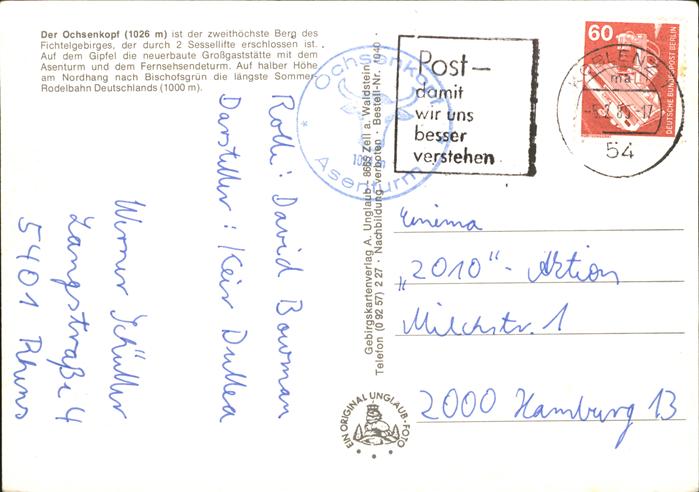 Der Ochsenkopf (1026 m) ist der zweithöchste Berg des
Fichtelgebirges, der durch 2 Sessellifte erschlossen ist.
Auf dem Gipfel die neuerbaute Großgaststätte mit dem
Asenturm und dem Fernsehsendeturm. Auf halber Höhe
am Nordhang nach Bischofsgrün die längste Sommer-
Rodelbahn Deutschlands (1000 m).
Rolle: David Bowman
Darsteller: Keir Dullea
Werner Schüller
Langstraße 4
5401 Rhens
Ochsenkopf
Asenturm
Gebirgskartenverlag A. Unglaub · 8665 Zell a. Waldstein
Telefon (0 92 57) 2 27 · Nachbildung verboten · Bestell-Nr. 1040
EIN ORIGINAL UNGLAUB-FOTO
Post-
damit
wir uns
besser
verstehen
60
DEUTSCHE BUNDESPOST BERLIN
KOBLENZ
ma
54
Cinema
„2010"-Aktion
Milchstr. 1
2000 Hamburg 13